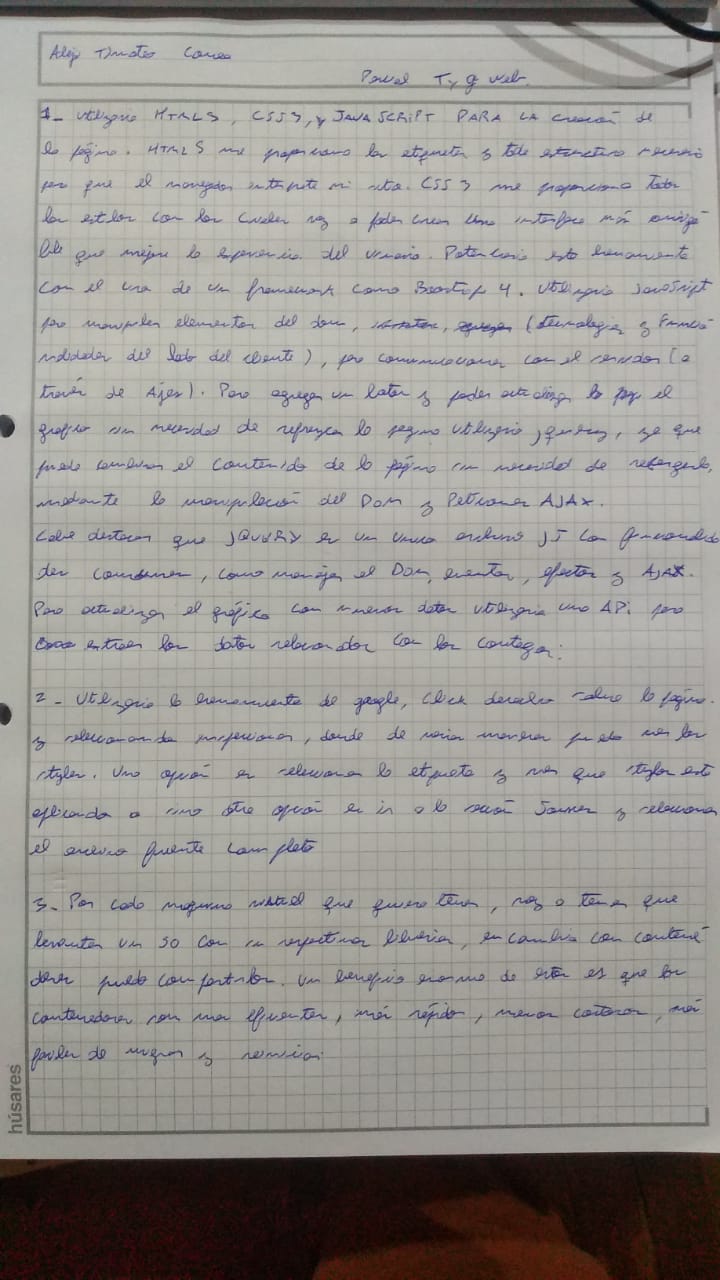 Correa
Parcial T y g web.
1- Utilizaria HTML5, CSS3, y JAVASCRIPT PARA LA creación de
la página. HTML5 me proporciona las etiquetas y toda estructura necesaria
para que el navegador interprete mi sitio. CSS3 me proporciona Todos
los estilos con los cuales voy a poder crear una interface más amigá
ble que mejore la experiencia del usuario. Potenciaria esta herramienta
con el uso de un framework como Boostrap 4. Utilizaria JavaScript
para manipular elementos del dom, (tecnologias y Funcio
nalidades del lado del cliente), para comunicaciones con el servidor (a
través de Ajax). Para agregar un boton y poder actualizar la pag el
gráfico sin necesidad de refrezcar la pagina utilizaria jquery, ya que
puede cambiar el contenido de la página sin necesidad de recargarla,
mediante la manipulación del DOM y Peticiones AJAX.
Cabe destacar que JQUERY es un unico archivo JS con funcionalida
des comunes, como manejar el DOM, eventos, efectos y AJAX.
Para actualizar el gráfico con nuevos datos utilizaria una API para
extraer los datos relacionados con los contagios.
2- Utilizaria la herramienta de google, Click derecho sobre la página.
y seleccionando inspeccionar, donde de varias maneras puedo ver los
styles. Una opción es seleccionar la etiqueta y ver que styles esta
aplicando o sino otra opción es ir a la sección Sources y seleccionar
el archivo fuente completo
3- Por cada maquina virtual que quiera tener, voy a tener que
levantar un SO con su respectivas librerias, en cambio con contene
dores puedo compartirlos. Un beneficio enorme de estos es que los
contenedores son mas eficientes, más rápido, menos costosos, más
faciles de migrar y reiniciar.
húsares